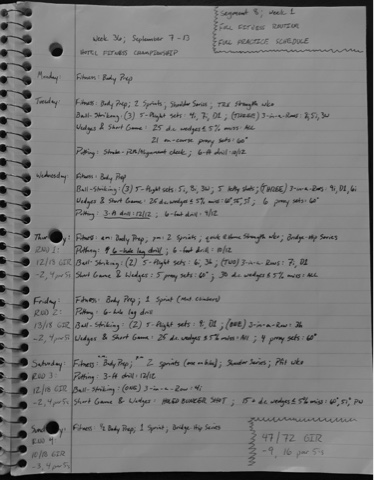 Week 36; September 7-13
Hotel Fitness Championship
Segment 8; Week 1
Full Fitness Routine
Full Practice Schedule
Monday: Fitness: Body Prep
Tuesday: Fitness: Body Prep; 2 Sprints; Shoulder Series; TRX Strength wko
Ball-Striking: (3) 5-flight sets: 9i, 7i, D1; (THREE) 3-in-a-Rows: 8i, 5i, 3w
Wedges & Short Game: 25 dc wedges ±5% miss: ALL
21 on-course proxy sets: 60°
Putting: Stroke-Path/Alignment check; 6-ft drill: 10/12
Wednesday: Fitness: Body Prep
Ball-Striking: (3) 5-flight sets: 5i, 8i, 3w; 5 lofty shots; (THREE) 3-in-a-Rows: 9i, D1, 6i
Wedges & Short Game: 25 dc wedges ±5% miss: 6 proxy sets: 60°
Putting: 3-ft drill: 12/12; 6-foot drill: 9/12
Thursday: Fitness: am: Body Prep, pm: 2 Sprints; Strength wko; Bridge-Hip Series
RND 1: Putting: 6-hole lag drill; 6-foot drill: 10/12
12/18 GIR Ball-Striking: (2) 5-flight sets: 6i, 3h; (TWO) 3-in-a-Rows: 7i, D1
-2, 4 par 5s Short Game & Wedges: 5 proxy sets: 60°; 30 dc wedges ±5% miss: ALL
Friday: Fitness: Body Prep; 1 Sprint
RND 2: Putting: 6-hole lag drill
13/18 GIR Ball-Striking: (2) 5-flight sets: 8i, D1; (ONE) 3-in-a-Row: 3h
-2, 4 par 5s Wedges & Short Game: 25 dc wedges ±5% miss: ALL; 4 proxy sets: 60°
Saturday: Fitness: Body Prep; 2 sprints; Shoulder Series; wko
RND 3: Putting: 3-ft drill: 12/12
12/18 GIR Ball-Striking: (ONE) 3-in-a-Row: 4i
-2, 4 par 5s Short Game & Wedges: BUNKER SHOT; 15 dc wedges ±5% miss: 60°, 51°, PW
Sunday: Fitness: ½ Body Prep; 1 Sprint; Bridge-Hip Series
RND 4:
10/18 GIR
-3, 4 par 5s
47/72 GIR
-9, 16 par 5s